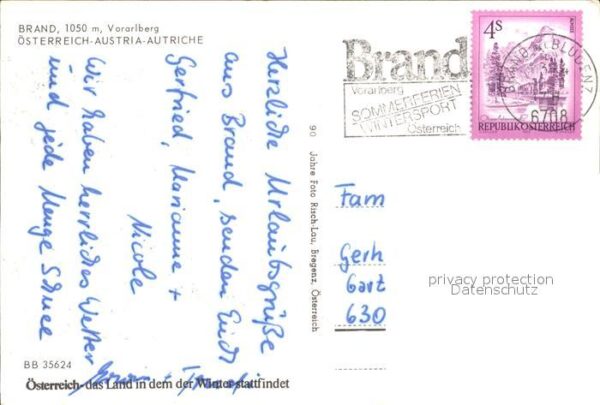 BRAND, 1050 m, Vorarlberg
ÖSTERREICH-AUSTRIA-AUTRICHE
Herzliche Urlaubsgrüße
aus Brand, senden Euch
Gerfried, Marianne +
Nicole
Wir haben herrliches Wetter
und jede Menge Schnee
BB 35624
Österreich-das Land in dem der Winter stattfindet
90 Jahre Foto Risch-Lau, Bregenz, Österreich
Brand
Vorarlberg
SOMMERFERIEN
WINTERSPORT
Österreich
4S
REPUBLIK ÖSTERREICH
BRAND B. BLUDENZ
6708
Fam
Gerh
Gart
630
privacy protection
Datenschutz